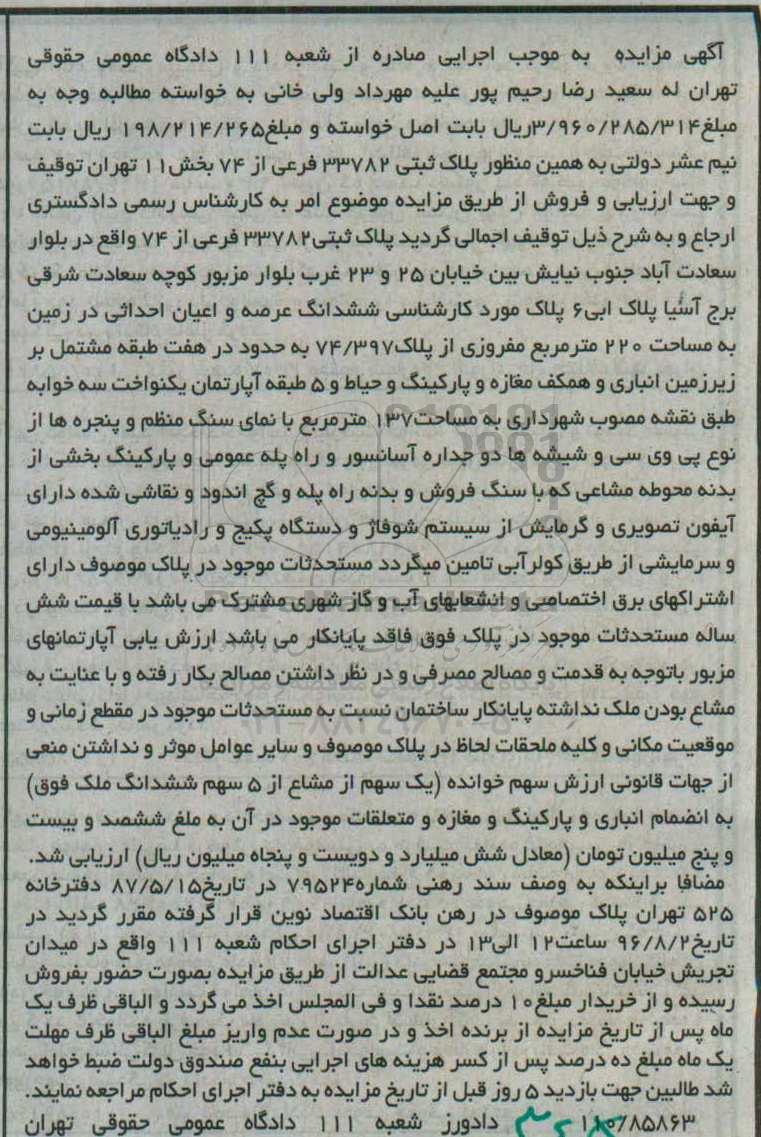 آگهی مزایده به موجب اجرایی صادره از شعبه ۱۱۱ دادگاه عمومی حقوقی
تهران له سعید رضا رحیم پور علیه مهرداد ولی خانی به خواسته مطالبه وجه به
مبلغ۳/۹۶۰/۲۸۵/۳۱۴ریال بابت اصل خواسته و مبلغ۱۹۸/۲۱۴/۲۶۵ ریال بابت
نیم عشر دولتی به همین منظور پلاک ثبتی ۳۳۷۸۲ فرعی از ۷۴ بخش۱۱ تهران توقیف
و جهت ارزیابی و فروش از طریق مزایده موضوع امر به کارشناس رسمی دادگستری
ارجاع و به شرح ذیل توقیف اجمالی گردید پلاک ثبتی۳۳۷۸۲ فرعی از ۷۴ واقع در بلوار
سعادت آباد جنوب نیایش بین خیابان ۲۵ و ۲۳ غرب بلوار مزبور کوچه سعادت شرقی
برج آسیا پلاک ابی۶ پلاک مورد کارشناسی ششدانگ عرصه و اعیان احداثی در زمین
به مساحت ۲۲۰ مترمربع مفروزی از پلاک۷۴/۳۹۷ به حدود در هفت طبقه مشتمل بر
زیرزمین انباری و همکف مغازه و پارکینگ و حیاط و ۵ طبقه آپارتمان یکنواخت سه خوابه
طبق نقشه مصوب شهرداری به مساحت۱۳۷ مترمربع با نمای سنگ منظم و پنجره ها از
نوع پی وی سی و شیشه ها دو جداره آسانسور و راه پله عمومی و پارکینگ بخشی از
بدنه محوطه مشاعی که با سنگ فروش و بدنه راه پله و گچ اندود و نقاشی شده دارای
آیفون تصویری و گرمایش از سیستم شوفاژ و دستگاه پکیج و رادیاتوری آلومینیومی
و سرمایشی از طریق کولرآبی تامین میگردد مستحدثات موجود در پلاک موصوف دارای
اشتراکهای برق اختصاصی و انشعابهای آب و گاز شهری مشترک می باشد با قیمت شش
ساله مستحدثات موجود در پلاک فوق فاقد پایانکار می باشد ارزش یابی آپارتمانهای
مزبور باتوجه به قدمت و مصالح مصرفی و در نظر داشتن مصالح بکار رفته و با عنایت به
مشاع بودن ملک نداشته پایانکار ساختمان نسبت به مستحدثات موجود در مقطع زمانی و
موقعیت مکانی و کلیه ملحقات لحاظ در پلاک موصوف و سایر عوامل موثر و نداشتن منعی
از جهات قانونی ارزش سهم خوانده (یک سهم از مشاع از ۵ سهم ششدانگ ملک فوق)
به انضمام انباری و پارکینگ و مغازه و متعلقات موجود در آن به ملغ ششصد و بیست
و پنج میلیون تومان (معادل شش میلیارد و دویست و پنجاه میلیون ریال) ارزیابی شد.
مضافا براینکه به وصف سند رهنی شماره۷۹۵۲۴ در تاریخ۸۷/۵/۱۵ دفترخانه
۵۲۵ تهران پلاک موصوف در رهن بانک اقتصاد نوین قرار گرفته مقرر گردید در
تاریخ۹۶/۸/۲ ساعت۱۲ الی۱۳ در دفتر اجرای احکام شعبه ۱۱۱ واقع در میدان
تجریش خیابان فناخسرو مجتمع قضایی عدالت از طریق مزایده بصورت حضور بفروش
رسیده و از خریدار مبلغ۱۰ درصد نقدا و فی المجلس اخذ می گردد و الباقی ظرف یک
ماه پس از تاریخ مزایده از برنده اخذ و در صورت عدم واریز مبلغ الباقی ظرف مهلت
یک ماه مبلغ ده درصد پس از کسر هزینه های اجرایی بنفع صندوق دولت ضبط خواهد
شد طالبین جهت بازدید ۵ روز قبل از تاریخ مزایده به دفتر اجرای احکام مراجعه نمایند.
۱۱۰/۸۵۸۶۳ دادورز شعبه ۱۱۱ دادگاه عمومی حقوقی تهران